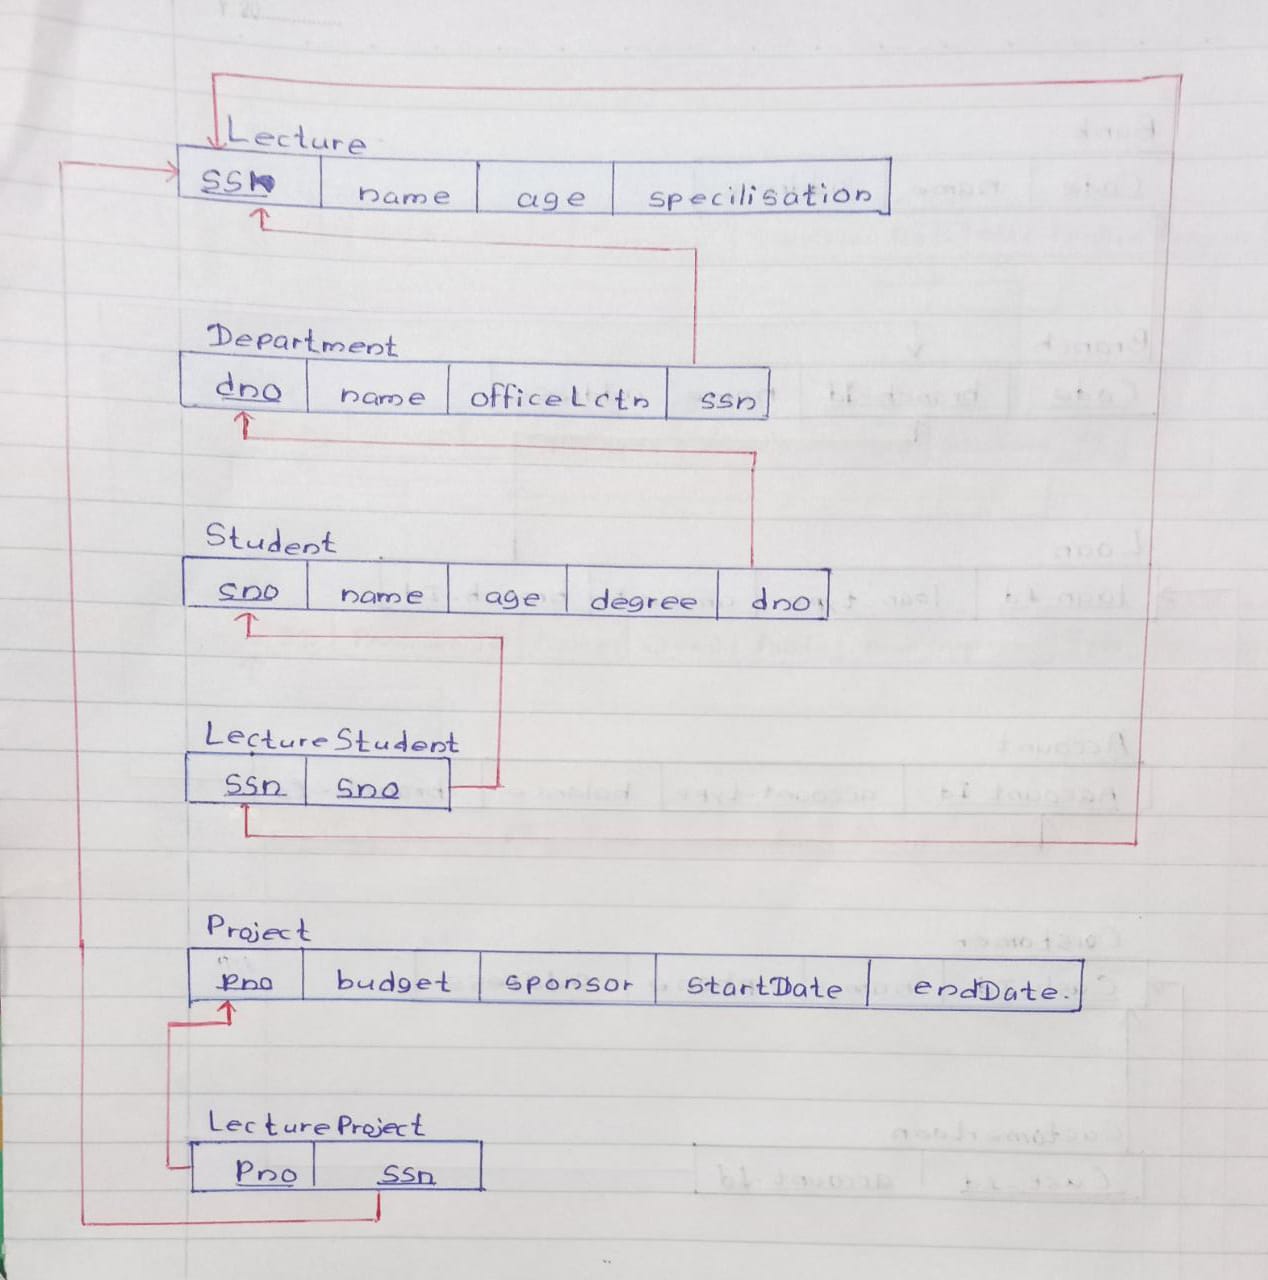 Lecture
ssn name age specilisation
Department
dno name officeLctn ssn
Student
sno name age degree dno
LectureStudent
ssn sno
Project
pno budget sponsor startDate endDate.
LectureProject
Pno ssn